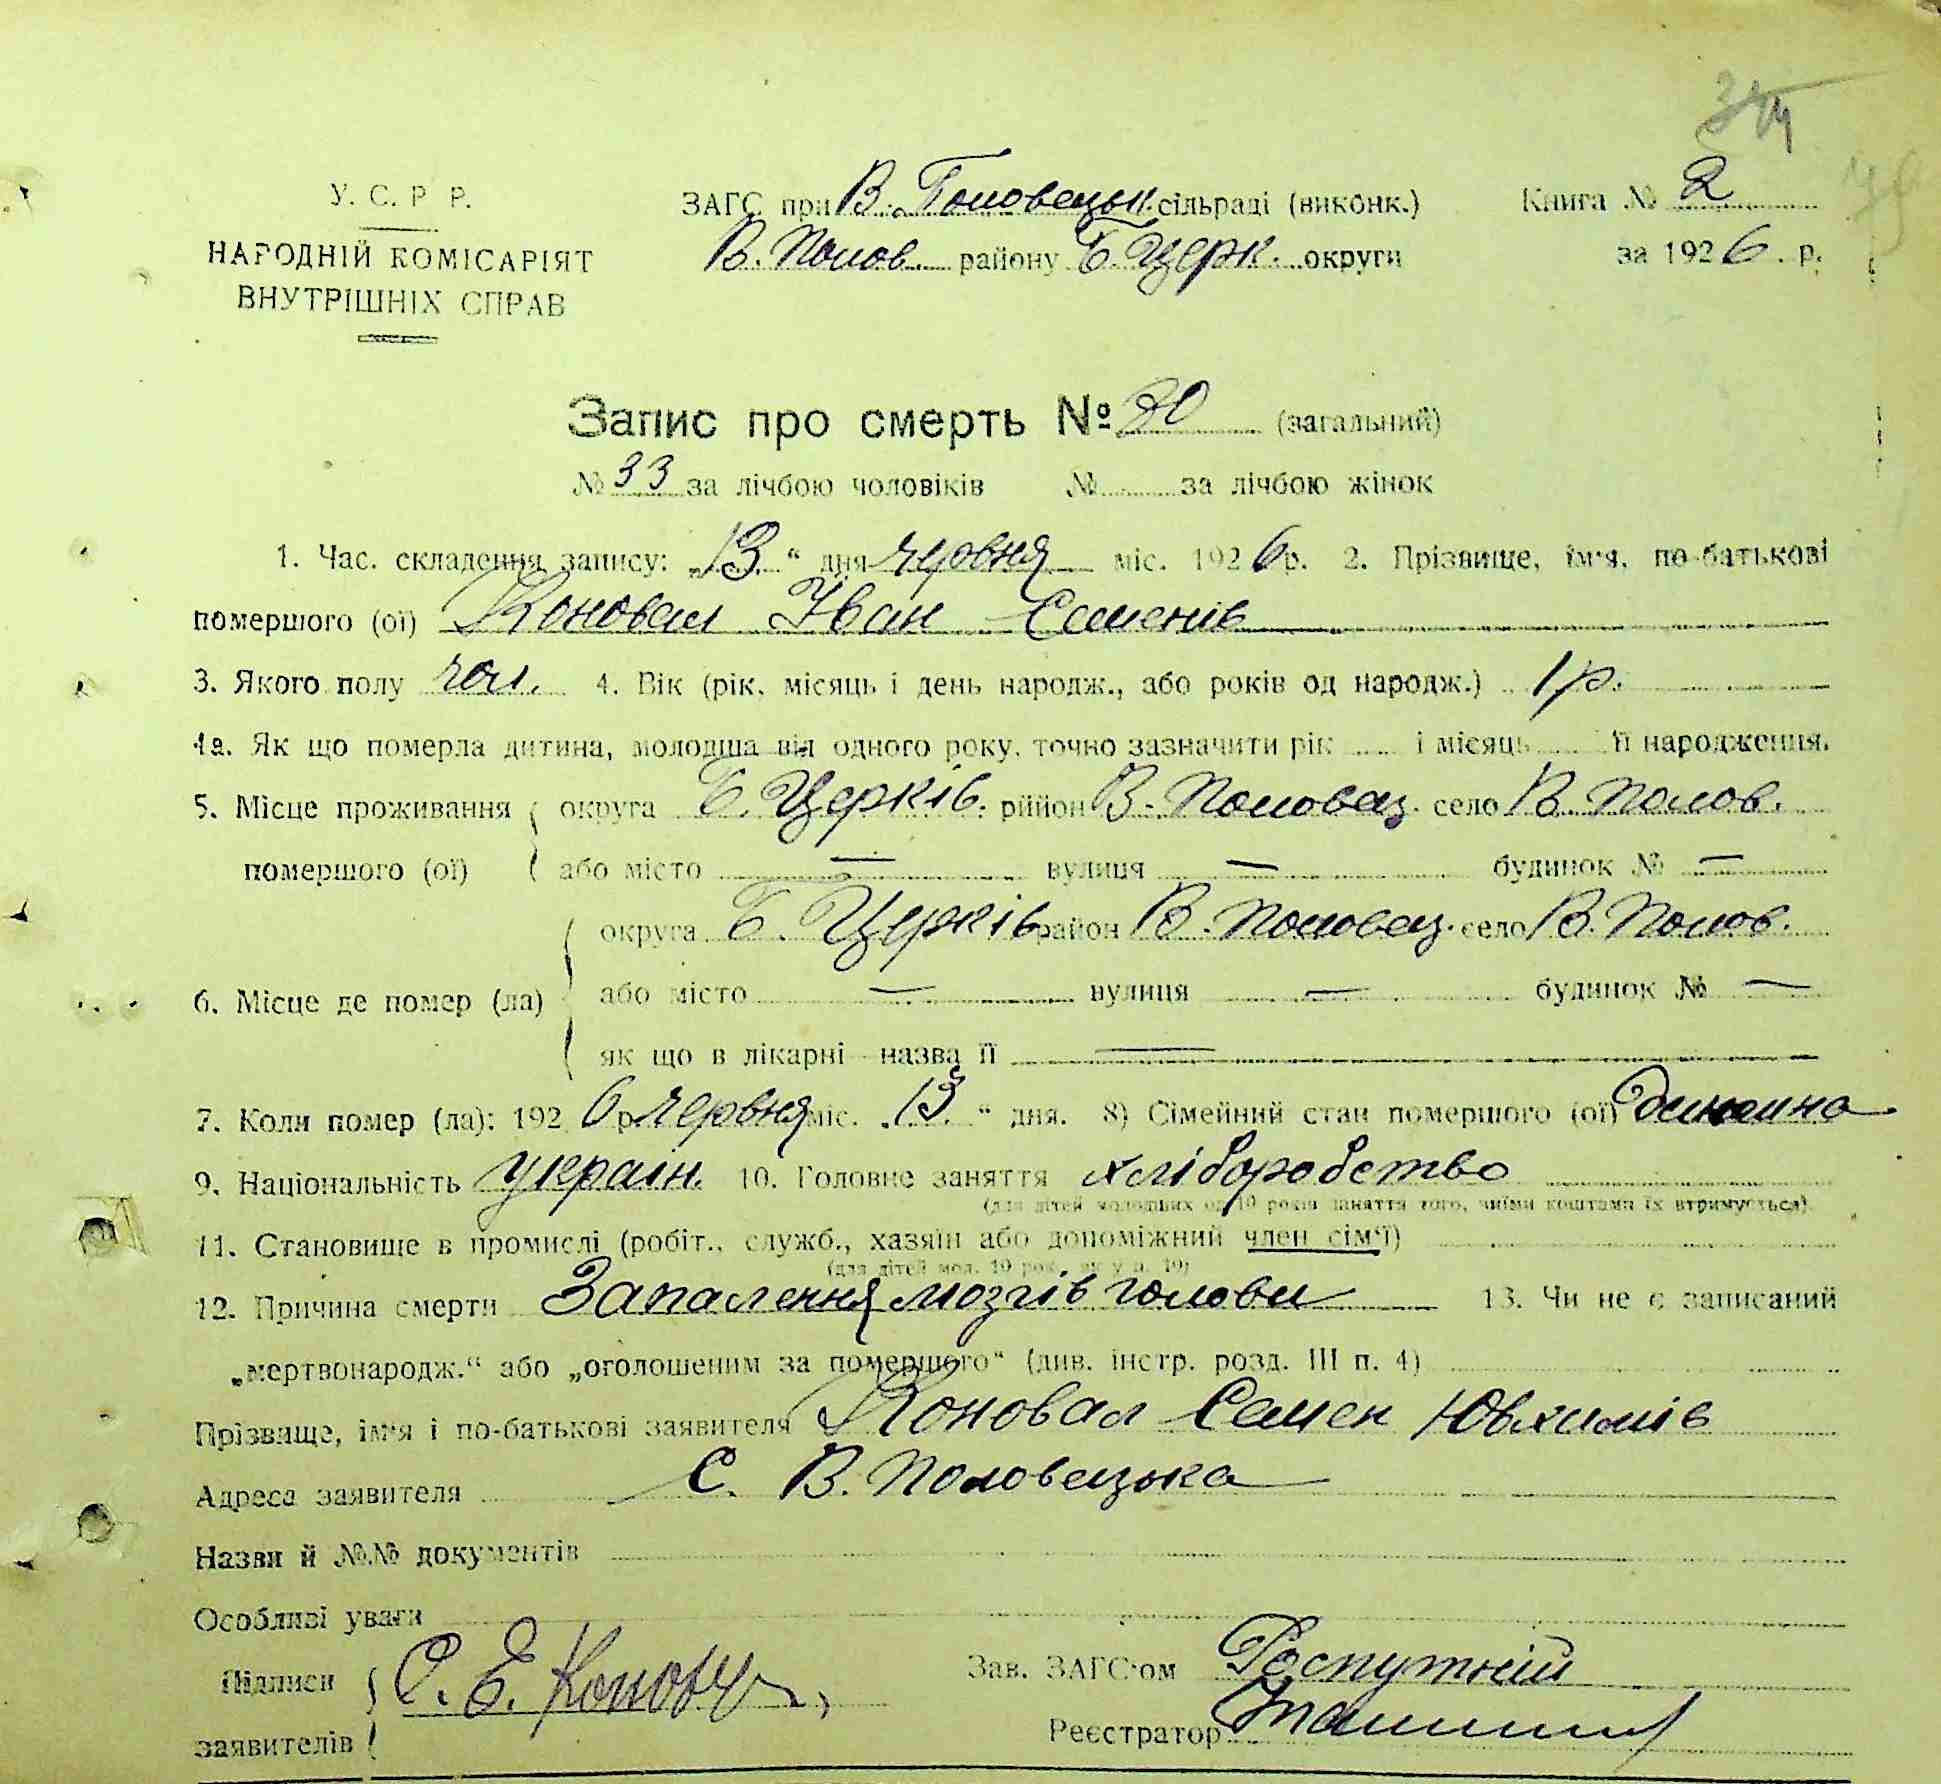 У. С. Р Р.
НАРОДНІЙ КОМІСАРІЯТ
ВНУТРІШНІХ СПРАВ
ЗАГС при В. Половецьк. сільраді (виконк.)
В. Полов. району Б. Церк. округи
Книга № 2
за 1926 р.
Запис про смерть № (загальний)
№ 33 за лічбою чоловіків № за лічбою жінок
1. Час. складення запису: „13“ дня червня міс. 1926 р. 2. Прізвище, ім'я, по-батькові
помершого (ої) Коновал Іван Семенів
3. Якого полу чол. 4. Вік (рік, місяць і день народж., або років од народж.) 1 р.
4а. Як що померла дитина, молодша від одного року, точно зазначити рік і місяць її народження.
5. Місце проживання округа Б. Церків. район В. Половец. село В. Полов.
помершого (ої) або місто — вулиця — будинок № —
округа Б. Церків район В. Половец. село В. Полов.
6. Місце де помер (ла) або місто — вулиця — будинок № —
як що в лікарні назва її —
7. Коли помер (ла): 1926 р. червня міс. „13“ дня. 8) Сімейний стан помершого (ої) дитина
9. Національність україн. 10. Головне заняття хліборобство
(для дітей молодших од 10 років заняття того, чиїми коштами їх втримується).
11. Становище в промислі (робіт., служб., хазяїн або допоміжний член сім'ї)
(для дітей мол. 10 рок. як у п. 10)
12. Причина смерти Запалення мозгів голови 13. Чи не є записаний
„мертвонародж.“ або „оголошеним за помершого“ (див. інстр. розд. III п. 4)
Прізвище, ім'я і по-батькові заявителя Коновал Семен Ювхимів
Адреса заявителя С. В. Половецька
Назви й №№ документів
Особливі уваги
Підписи С. Е. Коновал
заявителів
Зав. ЗАГС'ом Роспутній
Реєстратор